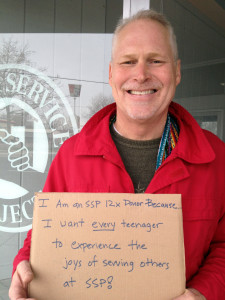 SERVICE
JECT
I Am an SSP 12x Donor Because...
I want every teenager
to experience the
joys of serving others
at SSP!